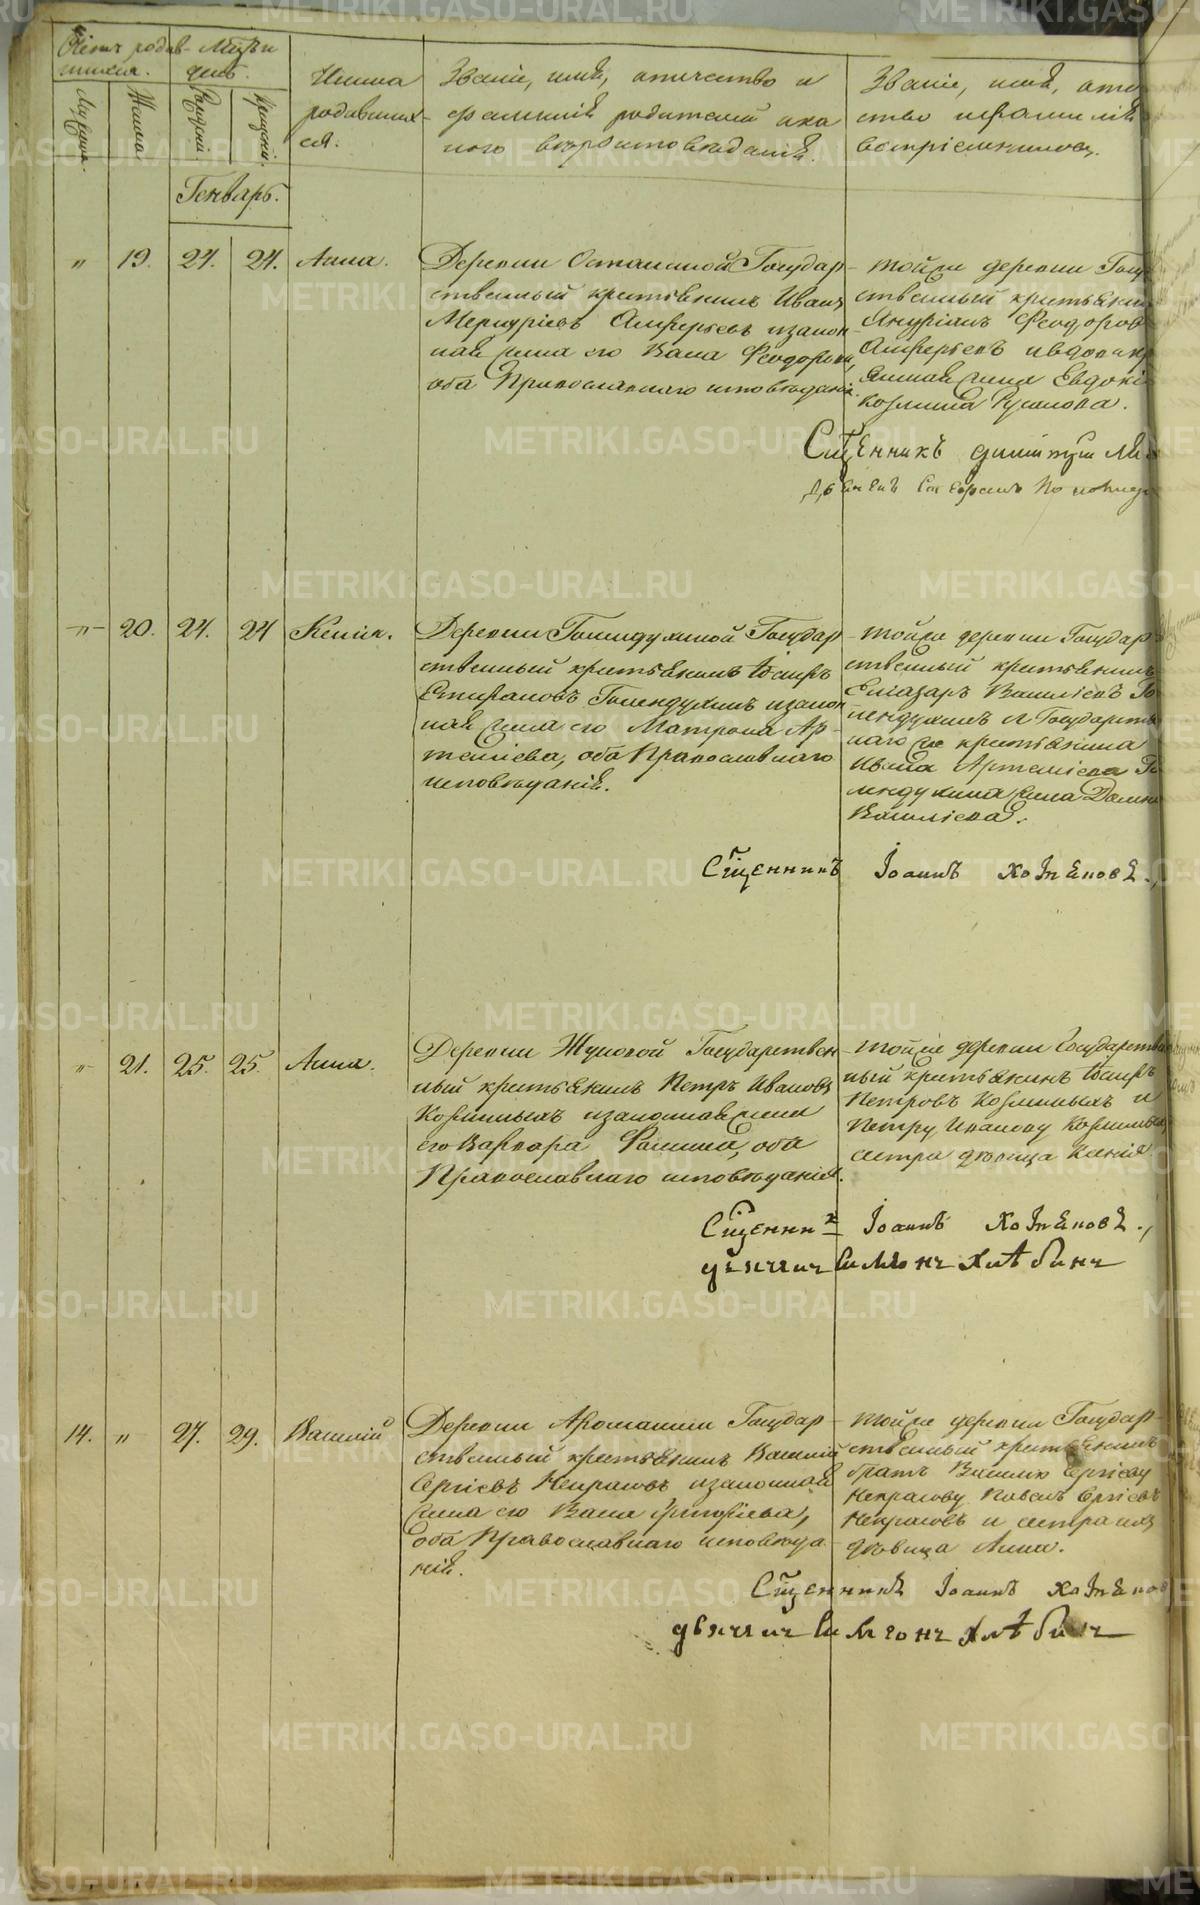 Счетъ родив- Мѣсяцъ и
шихся. день.
Мужеска. Женска. Рожденій Крещеній.
Имена
родивших-
ся.
Званіе, имя, отчество и
фамилія родителей и ка
кого вѣроисповѣданія.
Званіе, имя, отче
ство и фамилія
воспріемниковъ.
Генварь.
" 19. 24. 24. Анна.
Деревни Государ-
ственный крестьянинъ Иванъ
Меркуріевъ Алферьевъ и закон-
ная жена его Васса Феодорова,
оба Православнаго исповѣданія.
той же деревни Госуд
ственный крестьянин
Феодоров
Алферьевъ и
жена Евдокі
Козмина Русанова.
Сщенникъ Димитрій
-"- 20. 24. 24 Ксенія.
Деревни Голендухиной Государ
ственный крестьянинъ Іосифъ
Стефановъ Голендухинъ и закон
ная жена его Матрона Ар-
темиева, оба Православнаго
исповѣданія.
той же деревни Государ
ственный крестьянинъ
Елеазаръ Василіевъ Го
лендухинъ и Государствен
наго же крестьянина
Ивана Артеміева Го
лендухина жена Домна
Василіева.
Сщенникъ Іоаннъ Хозяиновъ.,
" 21. 25. 25. Анна.
Деревни Жуковой Государствен
ный крестьянинъ Петръ Ивановъ
Козминыхъ и законная жена
его Варвара Фомина, оба
Православнаго исповѣданія.
той же деревни Государствен
ный крестьянинъ Іосифъ
Петровъ Козминыхъ и
Петру Иванову Козминых
сестра дѣвица Ксенія.
Сщенникъ Іоаннъ Хозяиновъ.,
дьячекъ Симеонъ Хлѣбинъ
14. " 27. 29. Василій
Деревни Арамашки Государ-
ственный крестьянинъ Василій
Сергіевъ Некрасовъ и законная
жена его Васса Григоріева,
оба Православнаго исповѣда
нія.
той же деревни Государ-
ственный крестьянинъ
братъ Василію Сергіеву
Некрасову Павелъ Сергіевъ
Некрасовъ и сестра ихъ
дѣвица Анна.
Сщенникъ Іоаннъ Хозяинов
дьячекъ Симеонъ Хлѣбинъ